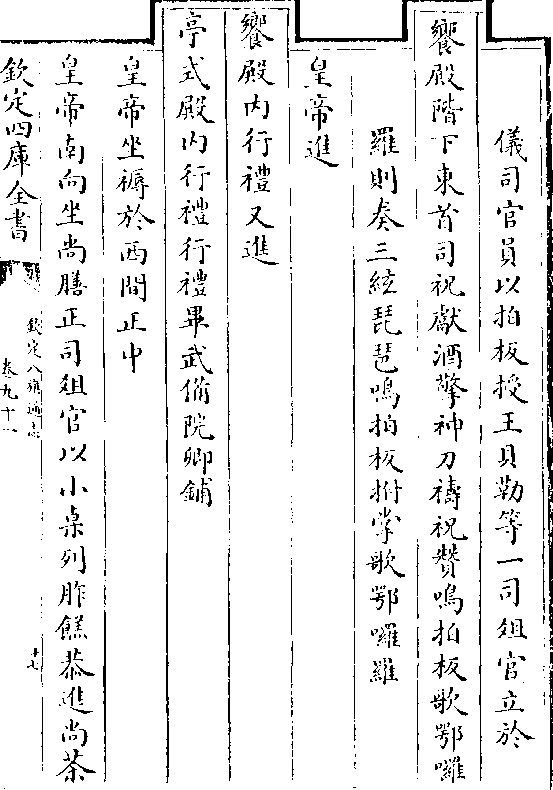 儀司官員以拍板授王貝勒等一司俎官立於
饗殿階下東首司祝獻酒擎神刀禱祝賛鳴拍板歌鄂囉
羅則奏三絃琵琶鳴拍板拊掌歌鄂囉羅
皇帝進
饗殿内行禮又進
亭式殿内行禮行禮畢武備院卿鋪
皇帝坐褥於西間正中
皇帝南向坐尚膳正司俎官以小桌列胙餻恭進尚茶
欽定四庫全書
欽定八旗通志
卷九十一
十七